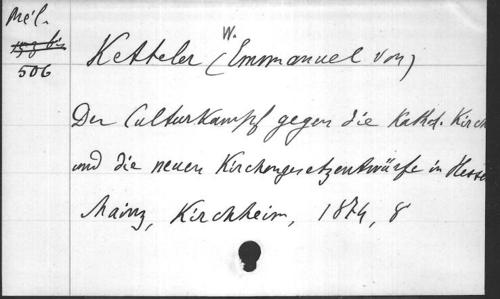 Mél.
506
W.
Ketteler (Emmanuel von)
Der Culturkampf gegen die Kathol. Kirch
und die neuen Kirchengesetzentwürfe in Hesse
Mainz, Kirchheim, 1874, 8